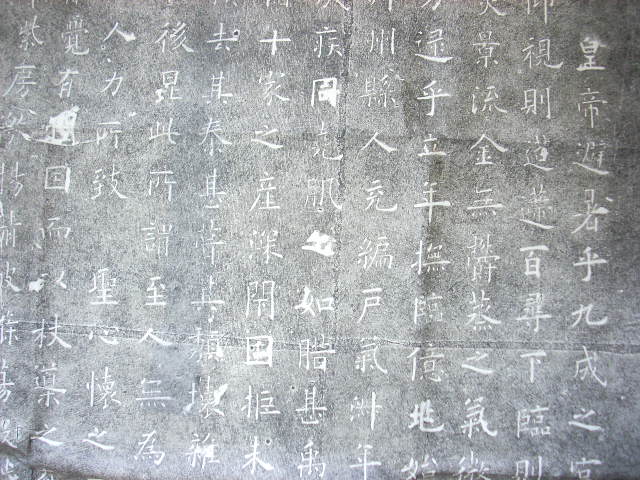 皇帝避暑乎九成之宮
仰視則迢遰百尋下臨則
炎景流金無鬱蒸之氣微
逮乎立年撫臨億兆始
州縣人充編戶氣淑年
疾同堯肌之如腊甚禹
十家之產深閉固拒未
去其泰甚葺其頹壞雜
後昆此所謂至人無為
人力所致聖心懷之
覺有潤因而以杖導之有
紫房激揚清波滌蕩瑕